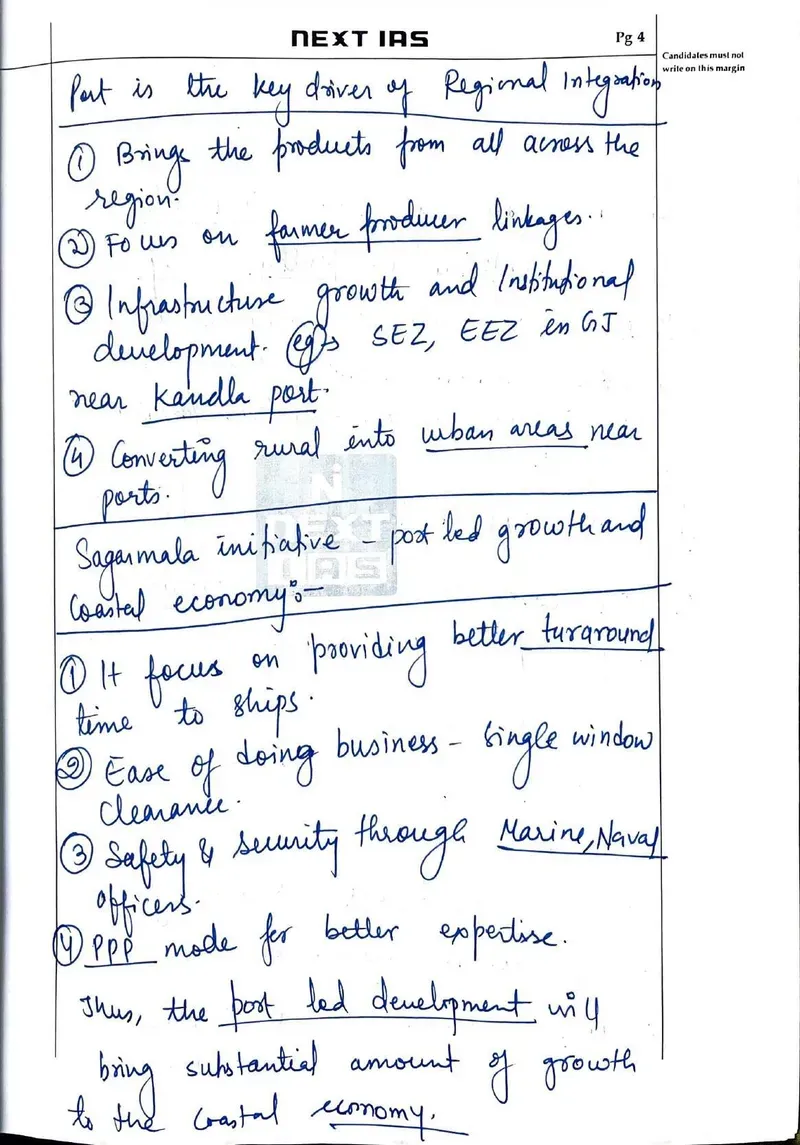 NEXT IAS
Pg 4
Candidates must not
write on this margin
Port is the key driver of Regional Integration
① Brings the products from all across the
region.
② Focus on farmer producer linkages.
③ Infrastructure growth and Institutional
development. eg → SEZ, EEZ in GJ
near Kandla port.
④ Converting rural into urban areas near
ports.
NEXT
IAS
Sagarmala initiative – port led growth and
Coastal economy:-
① It focus on providing better turaround
time to ships.
② Ease of doing business – Single window
clearance.
③ Safety & security through Marine, Naval
officers.
④ PPP mode for better expertise.
Thus, the port led development will
bring substantial amount of growth
to the coastal economy.